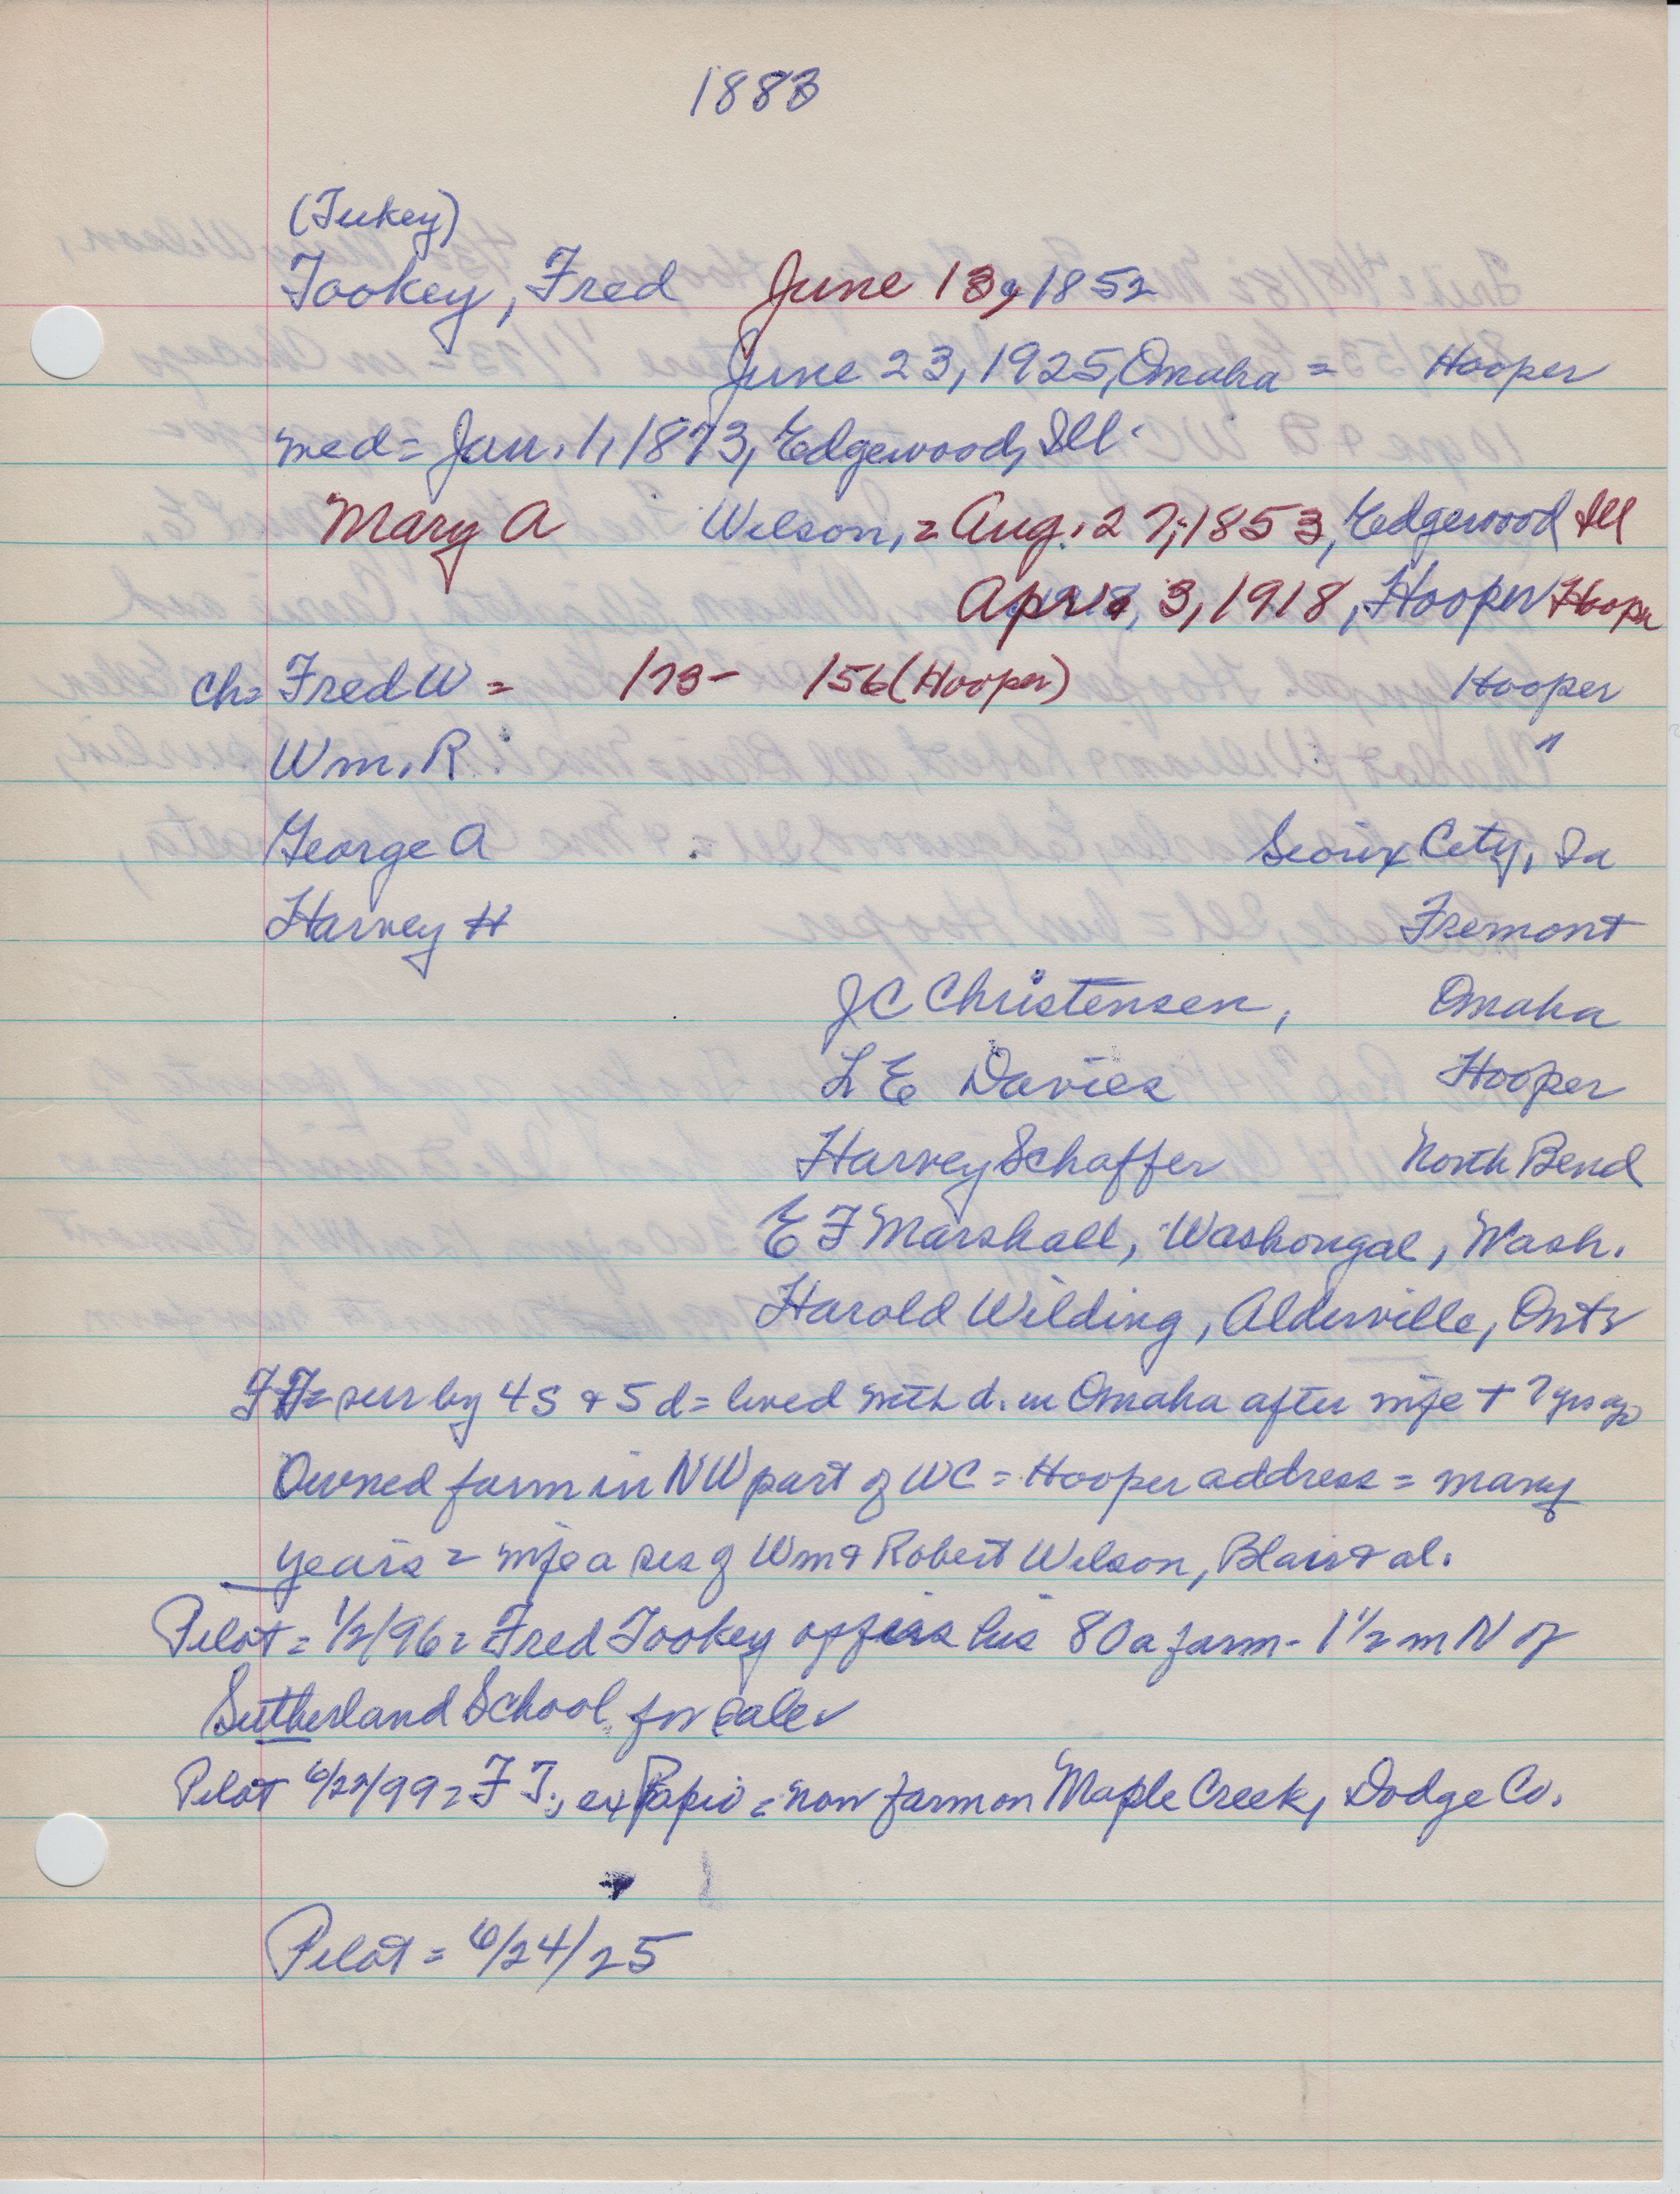 1883
(Tukey)
Tookey, Fred June 13, 1852
June 23, 1925, Omaha = Hooper
med = Jan. 1, 1873, Edgewood, Ill.
Mary A Wilson, = Aug. 27, 1853, Edgewood Ill
Apr. 3, 1918, Hooper Hooper
ch = Fred W = 173 - 156 (Hooper) Hooper
Wm. R "
George A Sioux City, Ia
Harvey H Fremont
J C Christensen, Omaha
L E Davies Hooper
Harvey Schaffer North Bend
E F Marshall, Washougal, Wash.
Harold Wilding, Alderville, Ont
FT = sur by 4 s & 5 d = lived with d. in Omaha after wife + 7 yrs ago
Owned farm in NW part of WC = Hooper address = many
years = wife a sis of Wm & Robert Wilson, Blair & al.
Pilot = 1/2/96 = Fred Tookey offers his 80a farm - 1 1/2 m N of
Sutherland School for sale
Pilot 6/22/99 = F T., ex Papio = now farm on Maple Creek, Dodge Co.
Pilot = 6/24/25